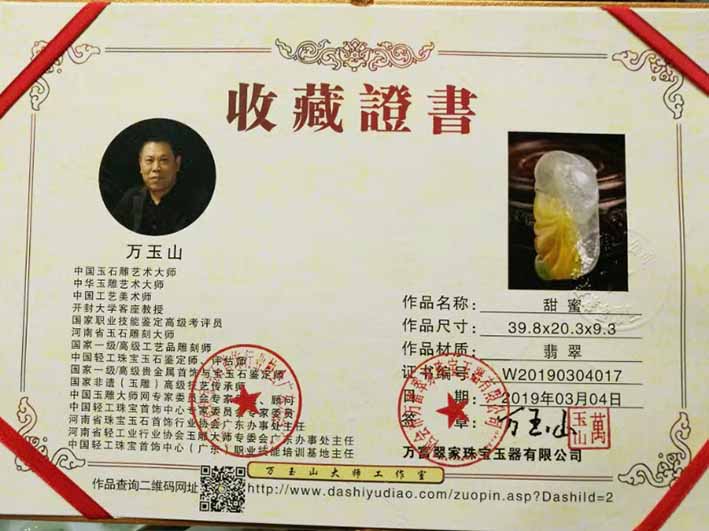 收藏證書
万玉山
中国玉石雕艺术大师
中华玉雕艺术大师
中国工艺美术师
开封大学客座教授
国家职业技能鉴定高级考评员
河南省玉石雕刻大师
国家一级/高级工艺品雕刻师
中国轻工珠宝玉石鉴定师、评估师
国家一级/高级贵金属首饰与宝玉石鉴定师
国家非遗（玉雕）高级技艺传承师
中国玉雕大师网专家委员会专家、顾问
中国轻工珠宝首饰中心专家委员会专家委员
河南省珠宝玉石首饰行业协会广东办事处主任
河南省轻工业行业协会玉雕大师专委会广东办事处主任
中国轻工珠宝首饰中心（广东）职业技能培训基地主任
作品名称: 甜蜜
作品尺寸: 39.8x20.3x9.3
作品材质: 翡翠
证书编号: W20190304017
日期: 2019年03月04日
签章: 万玉山
萬玉山
万富翠家珠宝玉器有限公司
万玉山大师工作室
作品查询二维码网址
http://www.dashiyudiao.com/zuopin.asp?DashiId=2